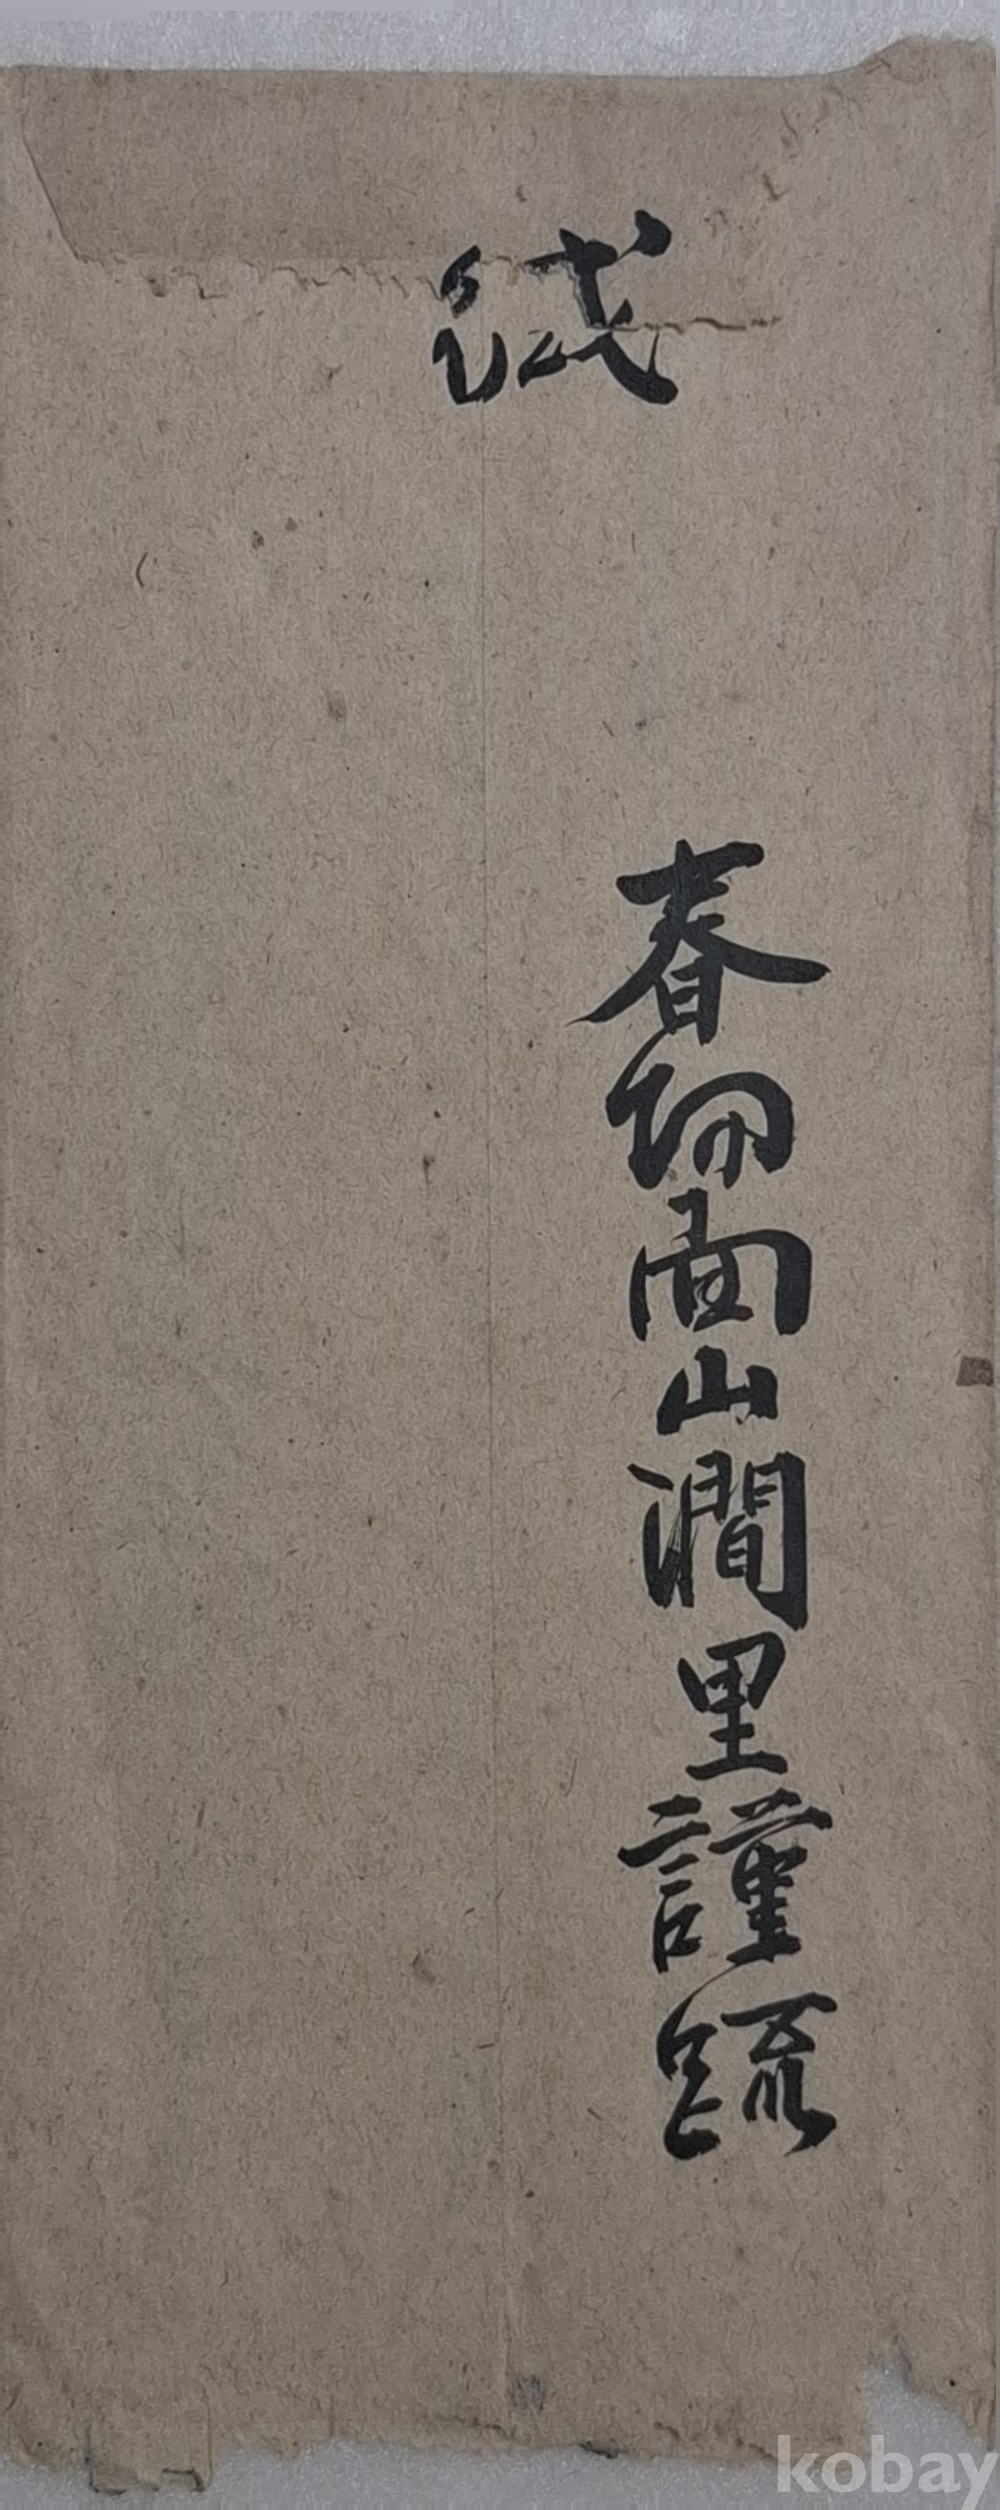 緘
春陽面山澗里謹疏
kobay